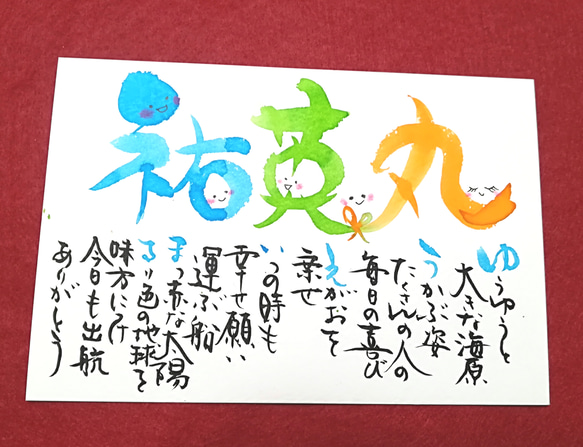 祐英丸
ゆうゆうと
大きな海原
うかぶ姿
たくさんの人の
毎日の喜び
えがおを
乗せ
いつの時も
幸せ願い
運ぶ船
まっ赤な太陽
るり色の地球を
味方につけ
今日も出航
ありがとう